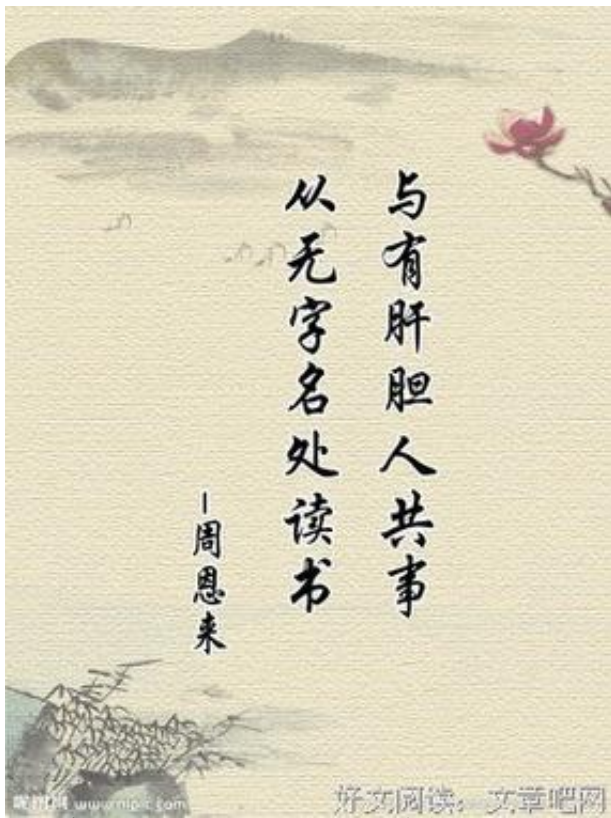 与有肝胆人共事
从无字名处读书
－周恩来
昵图网 www.nipic.com
好文阅读。文章吧网